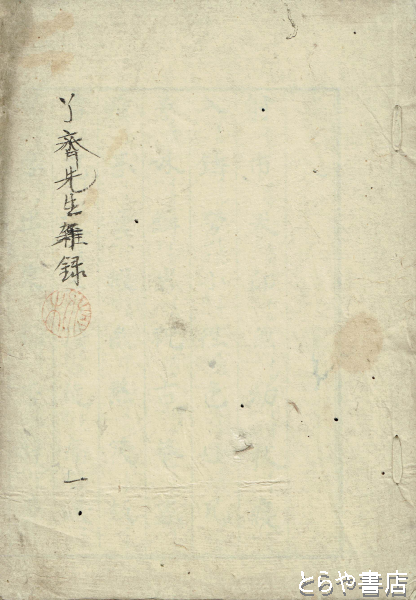 丫齋先生雜録
一
とらや書店